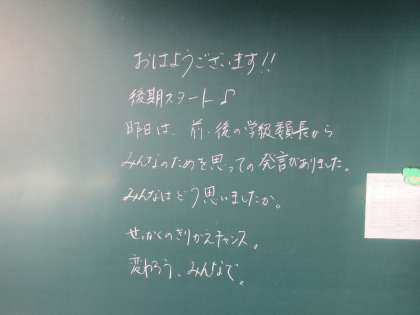 おはようございます!!
後期スタート♪
昨日は、前・後の学級委員長から
みんなのためを思っての発言がありました。
みんなはどう思いましたか。
せっかくのきりかえチャンス。
変わろう、みんなで。